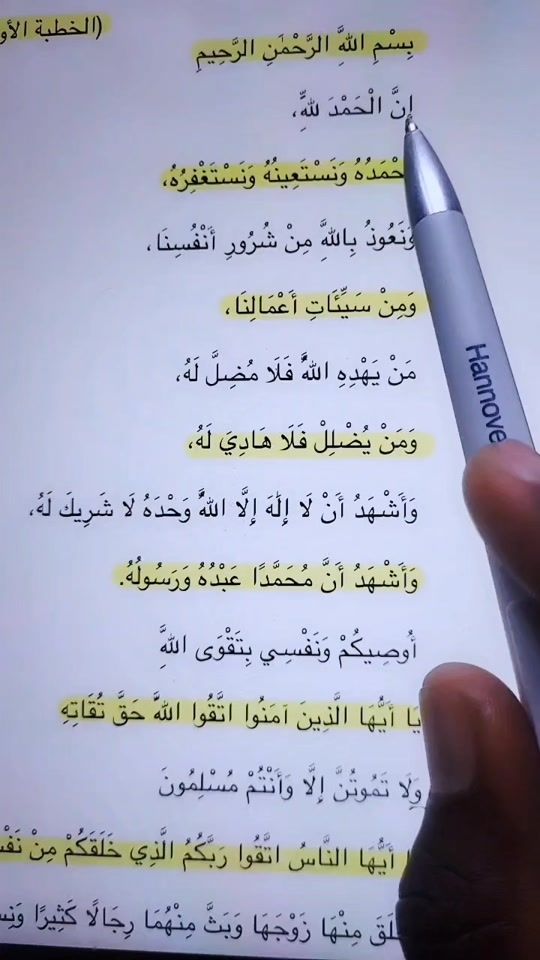 (الخطبة الأو
بِسْمِ اللَّهِ الرَّحْمٰنِ الرَّحِيمِ
إِنَّ الْحَمْدَ لِلَّهِ،
حْمَدُهُ وَنَسْتَعِينُهُ وَنَسْتَغْفِرُهُ،
وَنَعُوذُ بِاللَّهِ مِنْ شُرُورِ أَنْفُسِنَا،
وَمِنْ سَيِّئَاتِ أَعْمَالِنَا،
مَنْ يَهْدِهِ اللَّهُ فَلَا مُضِلَّ لَهُ،
وَمَنْ يُضْلِلْ فَلَا هَادِيَ لَهُ،
وَأَشْهَدُ أَنْ لَا إِلٰهَ إِلَّا اللَّهُ وَحْدَهُ لَا شَرِيكَ لَهُ،
وَأَشْهَدُ أَنَّ مُحَمَّدًا عَبْدُهُ وَرَسُولُهُ.
أُوصِيكُمْ وَنَفْسِي بِتَقْوَى اللَّهِ
يَا أَيُّهَا الَّذِينَ آمَنُوا اتَّقُوا اللَّهَ حَقَّ تُقَاتِهِ
وَلَا تَمُوتُنَّ إِلَّا وَأَنْتُمْ مُسْلِمُونَ
ا أَيُّهَا النَّاسُ اتَّقُوا رَبَّكُمُ الَّذِي خَلَقَكُمْ مِنْ نَفْس
لَقَ مِنْهَا زَوْجَهَا وَبَثَّ مِنْهُمَا رِجَالًا كَثِيرًا وَنِس
Hannove